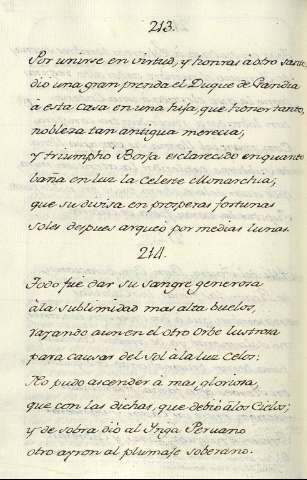 213.
Por unirse en virtud, y honras à otro sante
dió una gran prenda el Duque de Gandia
à esta Casa en una hija, que honor tanto,
nobleza tan antigua merecia,
y triumphó Borja esclarecido en quanto
baña en luz la Celeste Monarchia,
que su divisa en prosperas fortunas
soles despues arqueó por medias lunas.
214.
Todo fué dar su sangre generosa
à la sublimidad mas alta buelos,
rayando aun en el otro Orbe lustrosa
para causar del Sol à la luz Celos:
No pudo ascender à mas, gloriosa,
que con las dichas, que debió à los Cielos;
y de sobra dió al Ynga Peruano
otro ayron al plumaje soberano.